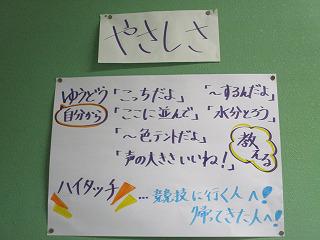 やさしさ
ゆうどう「こっちだよ」「~するんだよ」
自分から「ここに並んで」「水分とろう」
「~色テントだよ」
教える
「声の大きさいいね!」
ハイタッチ…競技に行く人へ!
帰ってきた人へ!